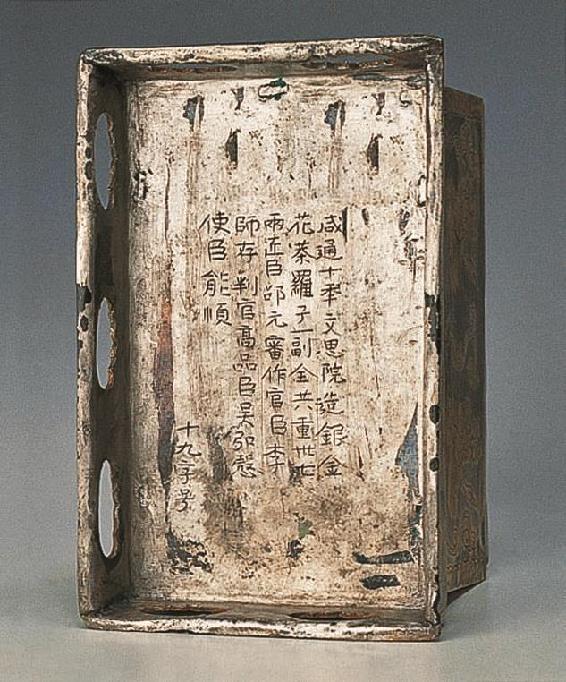 咸通十年文思院造銀金
花茶羅子一副全共重卅七
兩匠臣邵元審作官臣李
師存判官高品臣吴弘慤
使臣能順
十九字号